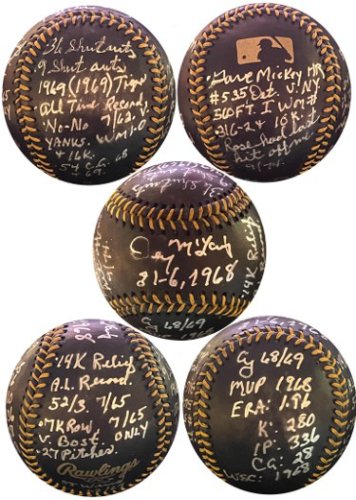 36 Shutouts
9 Shut outs
1969 (1969) Tiger
All Time Record
No-No 7/62.
YANKS. W M 1-0
+ 16K. 68
54 CG. + 69.
Gave Mickey HR
#535 Det. V. NY.
360 FT. I Won #
31 6-2-4 10K.
Rose had last
hit off me.
Denny McLain
31-6, 1968
Cy 68/69
'14K Relief
'14K Relief
A.L. Record.
5 2/3 7/65
.7K Row, 7/65
V. Bost. ONLY
.27 Pitches.
Rawlings
Cy 68/69
MVP 1968
ERA: 1.96
K: 280
IP: 336
CG: 28
WSC: 1968